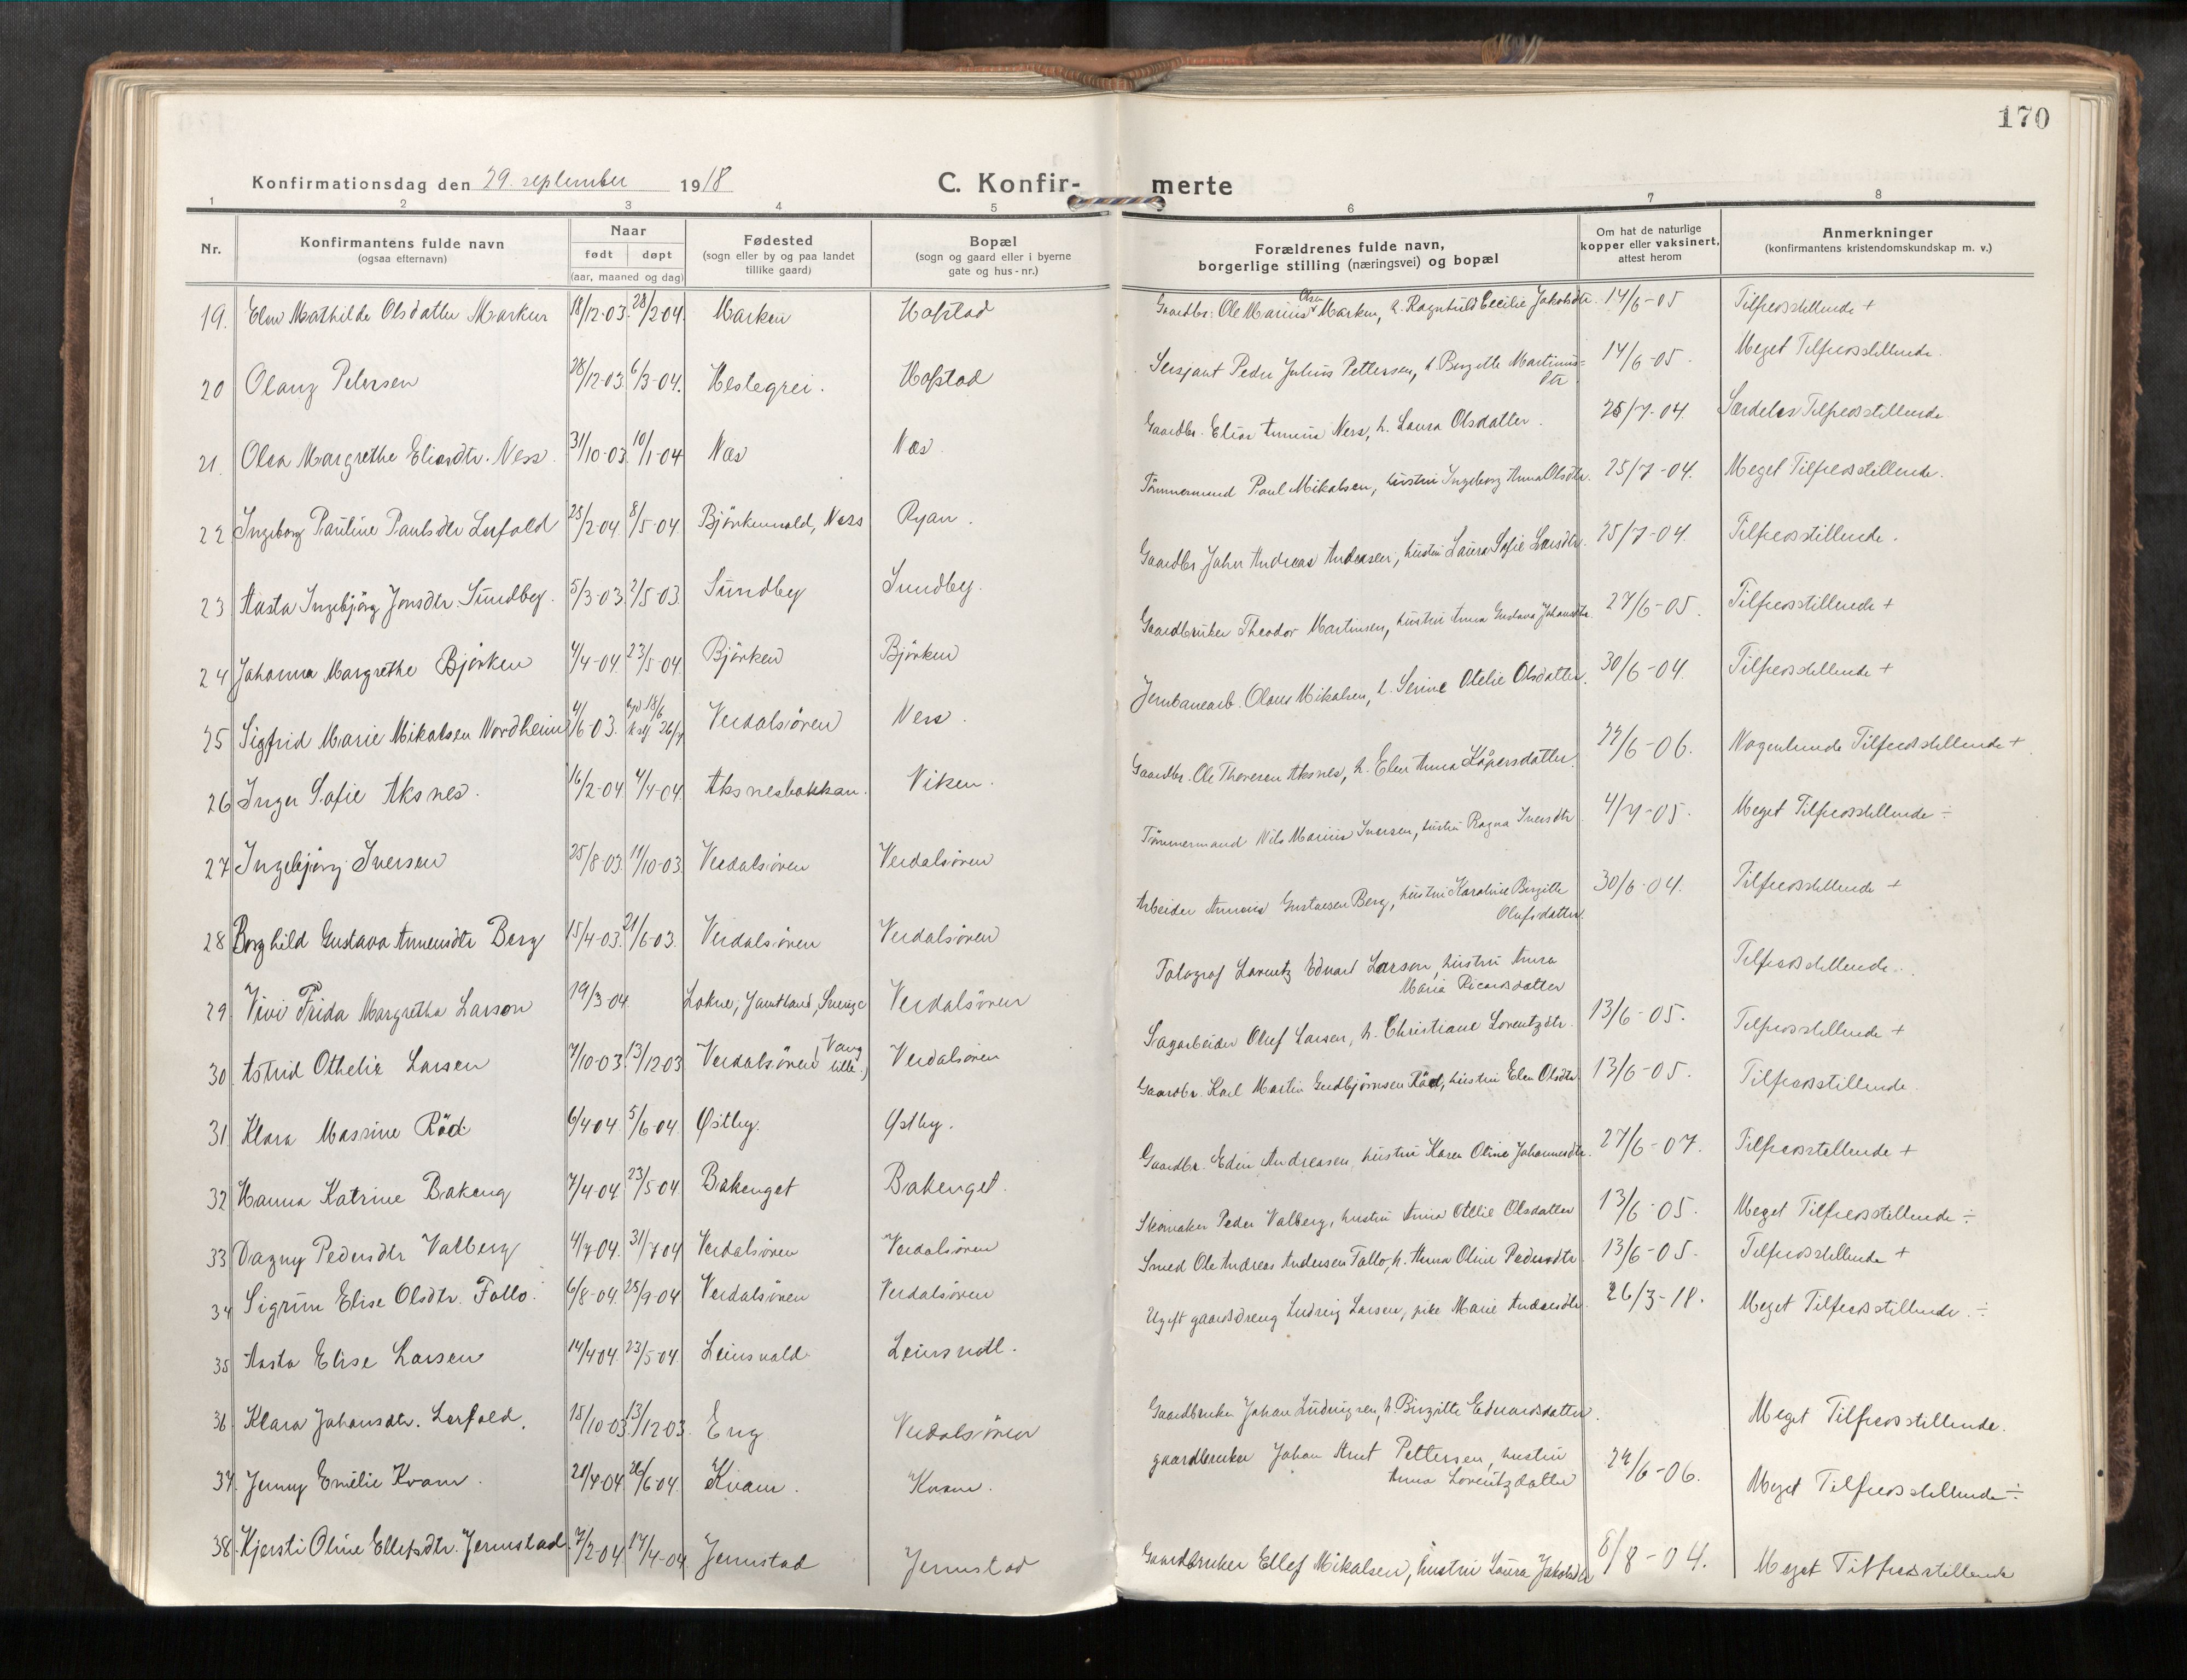 170
Konfirmationsdag den 29. september 1918
C. Konfir-
merte
1 2 3 4 5 6 7 8
Nr.
Konfirmantens fulde navn
(ogsaa efternavn)
Naar
født døpt
(aar, maaned og dag)
Fødested
(sogn eller by og paa landet
tillike gaard)
Bopæl
(sogn og gaard eller i byerne
gate og hus-nr.)
Forældrenes fulde navn,
borgerlige stilling (næringsvei) og bopæl
Om hat de naturlige
kopper eller vaksinert,
attest herom
Anmerkninger
(konfirmantens kristendomskundskap m. v.)
19. Elen Mathilde Olsdatter Marken 18/12-03. 28/2 04. Marken Hofstad Gaardbr. Ole Marius Olsen Marken, h. Ragnhild Cecilie Jakobsdtr. 14/6-05 Tilfredsstillende +
20 Olaug Petersen 28/12-03. 6/3-04. Hestegrei. Hofstad Sersjant Peder Julius Pettersen, h. Bergitte Martinus-
dtr 14/6-05. Meget Tilfredsstillende.
21. Olea Margrethe Eliasdtr. Ness. 31/10-03. 10/1-04 Næs Næs. Gaardbr. Elias Arneus Ness, h. Laura Olsdatter. 25/7-04. Særdeles Tilfredsstillende
22 Ingeborg Pauline Paulsdtr Lerfald 25/2 04. 8/5-04. Björkenvald, Ness Ryan. Tömmermand Paul Mikalsen, hustru Ingeborg Anna Olsdtr. 25/7-04. Meget Tilfredsstillende.
23 Aasta Ingebjörg Jonsdtr. Sundby. 5/3-03. 2/5-03. Sundby Sundby. Gaardbr John Andreas Andersen, hustru Laura Sofie Larsdtr. 25/7-04. Tilfredsstillende.
24 Johanna Margrethe Björken 4/4-04. 23/5-04. Björken Björken Gaardbruker Theodor Martinsen, hustru Anna Gustava Johansdtr. 27/6-05. Tilfredsstillende +
25 Sigfrid Marie Mikalsen Nordheim 4/6-03. 18/6 26/7 Verdalsören Ness. Jernbanearb. Olaus Mikalsen, h. Serine Otelie Olsdatter. 30/6-04. Tilfredsstillende +
26 Inger Sofie Aksnes. 16/2-04. 4/4-04. Aksnesbakkan. Viken. Gaardbr. Ole Thoresen Aksnes, h. Elen Anna Kåpersdatter. 27/6-06. Nogenlunde Tilfredsstillende +
27 Ingebjörg Iversen 25/8-03. 11/10-03 Verdalsören Verdalsören Tömmermand Nils Marius Iversen, hustru Ragna Iversdtr. 4/7-05. Meget Tilfredsstillende ÷
28 Borghild Gustava Arneusdtr Berg 15/4-03. 21/6-03. Verdalsören Verdalsören Arbeider Arneus Gustavsen Berg, hustru Karoline Birgitte
Olufsdatter. 30/6-04. Tilfredsstillende +
29 Vivi Frida Margretha Larson 19/3-04. Lokne, Jamtland, Sverige Verdalsören Fotograf Lorentz Edvard Larson, hustru Anna
Maria Ricardsdatter Tilfredsstillende.
30 Astrid Othelie Larsen 7/10-03. 13/12 03 Verdalsören (Vang
lille.) Verdalsören Sagarbeider Oluf Larsen, h. Christiane Lorentzdtr. 13/6-05. Tilfredsstillende +
31 Klara Massine Röd 6/4 04. 5/6-04 Østby. Østby. Gaardbr. Karl Martin Gudbjörnsen Röd, hustru Elen Olsdtr. 13/6-05. Tilfredsstillende.
32 Hanna Katrine Bakeng 7/4-04. 23/5 04. Bakenget Bakenget. Gaardbr. Edin Andreasen, hustru Karen Oline Johannesdtr. 27/6-07. Tilfredsstillende +
33 Dagny Pedersdtr Valberg 4/7-04. 31/7 04 Verdalsören Verdalsören Skomaker Peder Valberg, hustru Anna Otelie Olsdatter 13/6-05. Meget Tilfredsstillende ÷
34 Sigrun Elise Olsdtr. Follo. 6/8-04. 25/9-04 Verdalsören Verdalsören Smed Ole Andreas Andersen Follo, h. Anna Oline Pedersdtr. 13/6-05. Tilfredsstillende +
35 Aasta Elise Larsen 14/4 04. 23/5-04. Leinsvald. Leinsvall. Ugift gaardsdreng Ludvig Larsen, pike Marie Andersdtr. 26/3-18. Meget Tilfredsstillende. ÷
36. Klara Johansdtr. Lerfald. 15/10-03. 13/12 03. Eng Verdalsören Gaardbruker Johan Ludvigsen, h. Birgitte Edvardsdatter. Meget Tilfredsstillende.
37. Jenny Emilie Kvam. 21/4-04. 26/6-04. Kvam. Kvam. gaardbruker Johan Arnt Pettersen, hustru
Anna Lorentzdatter 27/6-06. Meget Tilfredsstillende ÷
38. Kjersti Oline Ellefsdtr. Jermstad. 7/2-04. 17/4-04. Jermstad Jermstad Gaardbruker Ellef Mikalsen, hustru Laura Jakobsdtr 8/8-04. Meget Tilfredsstillende